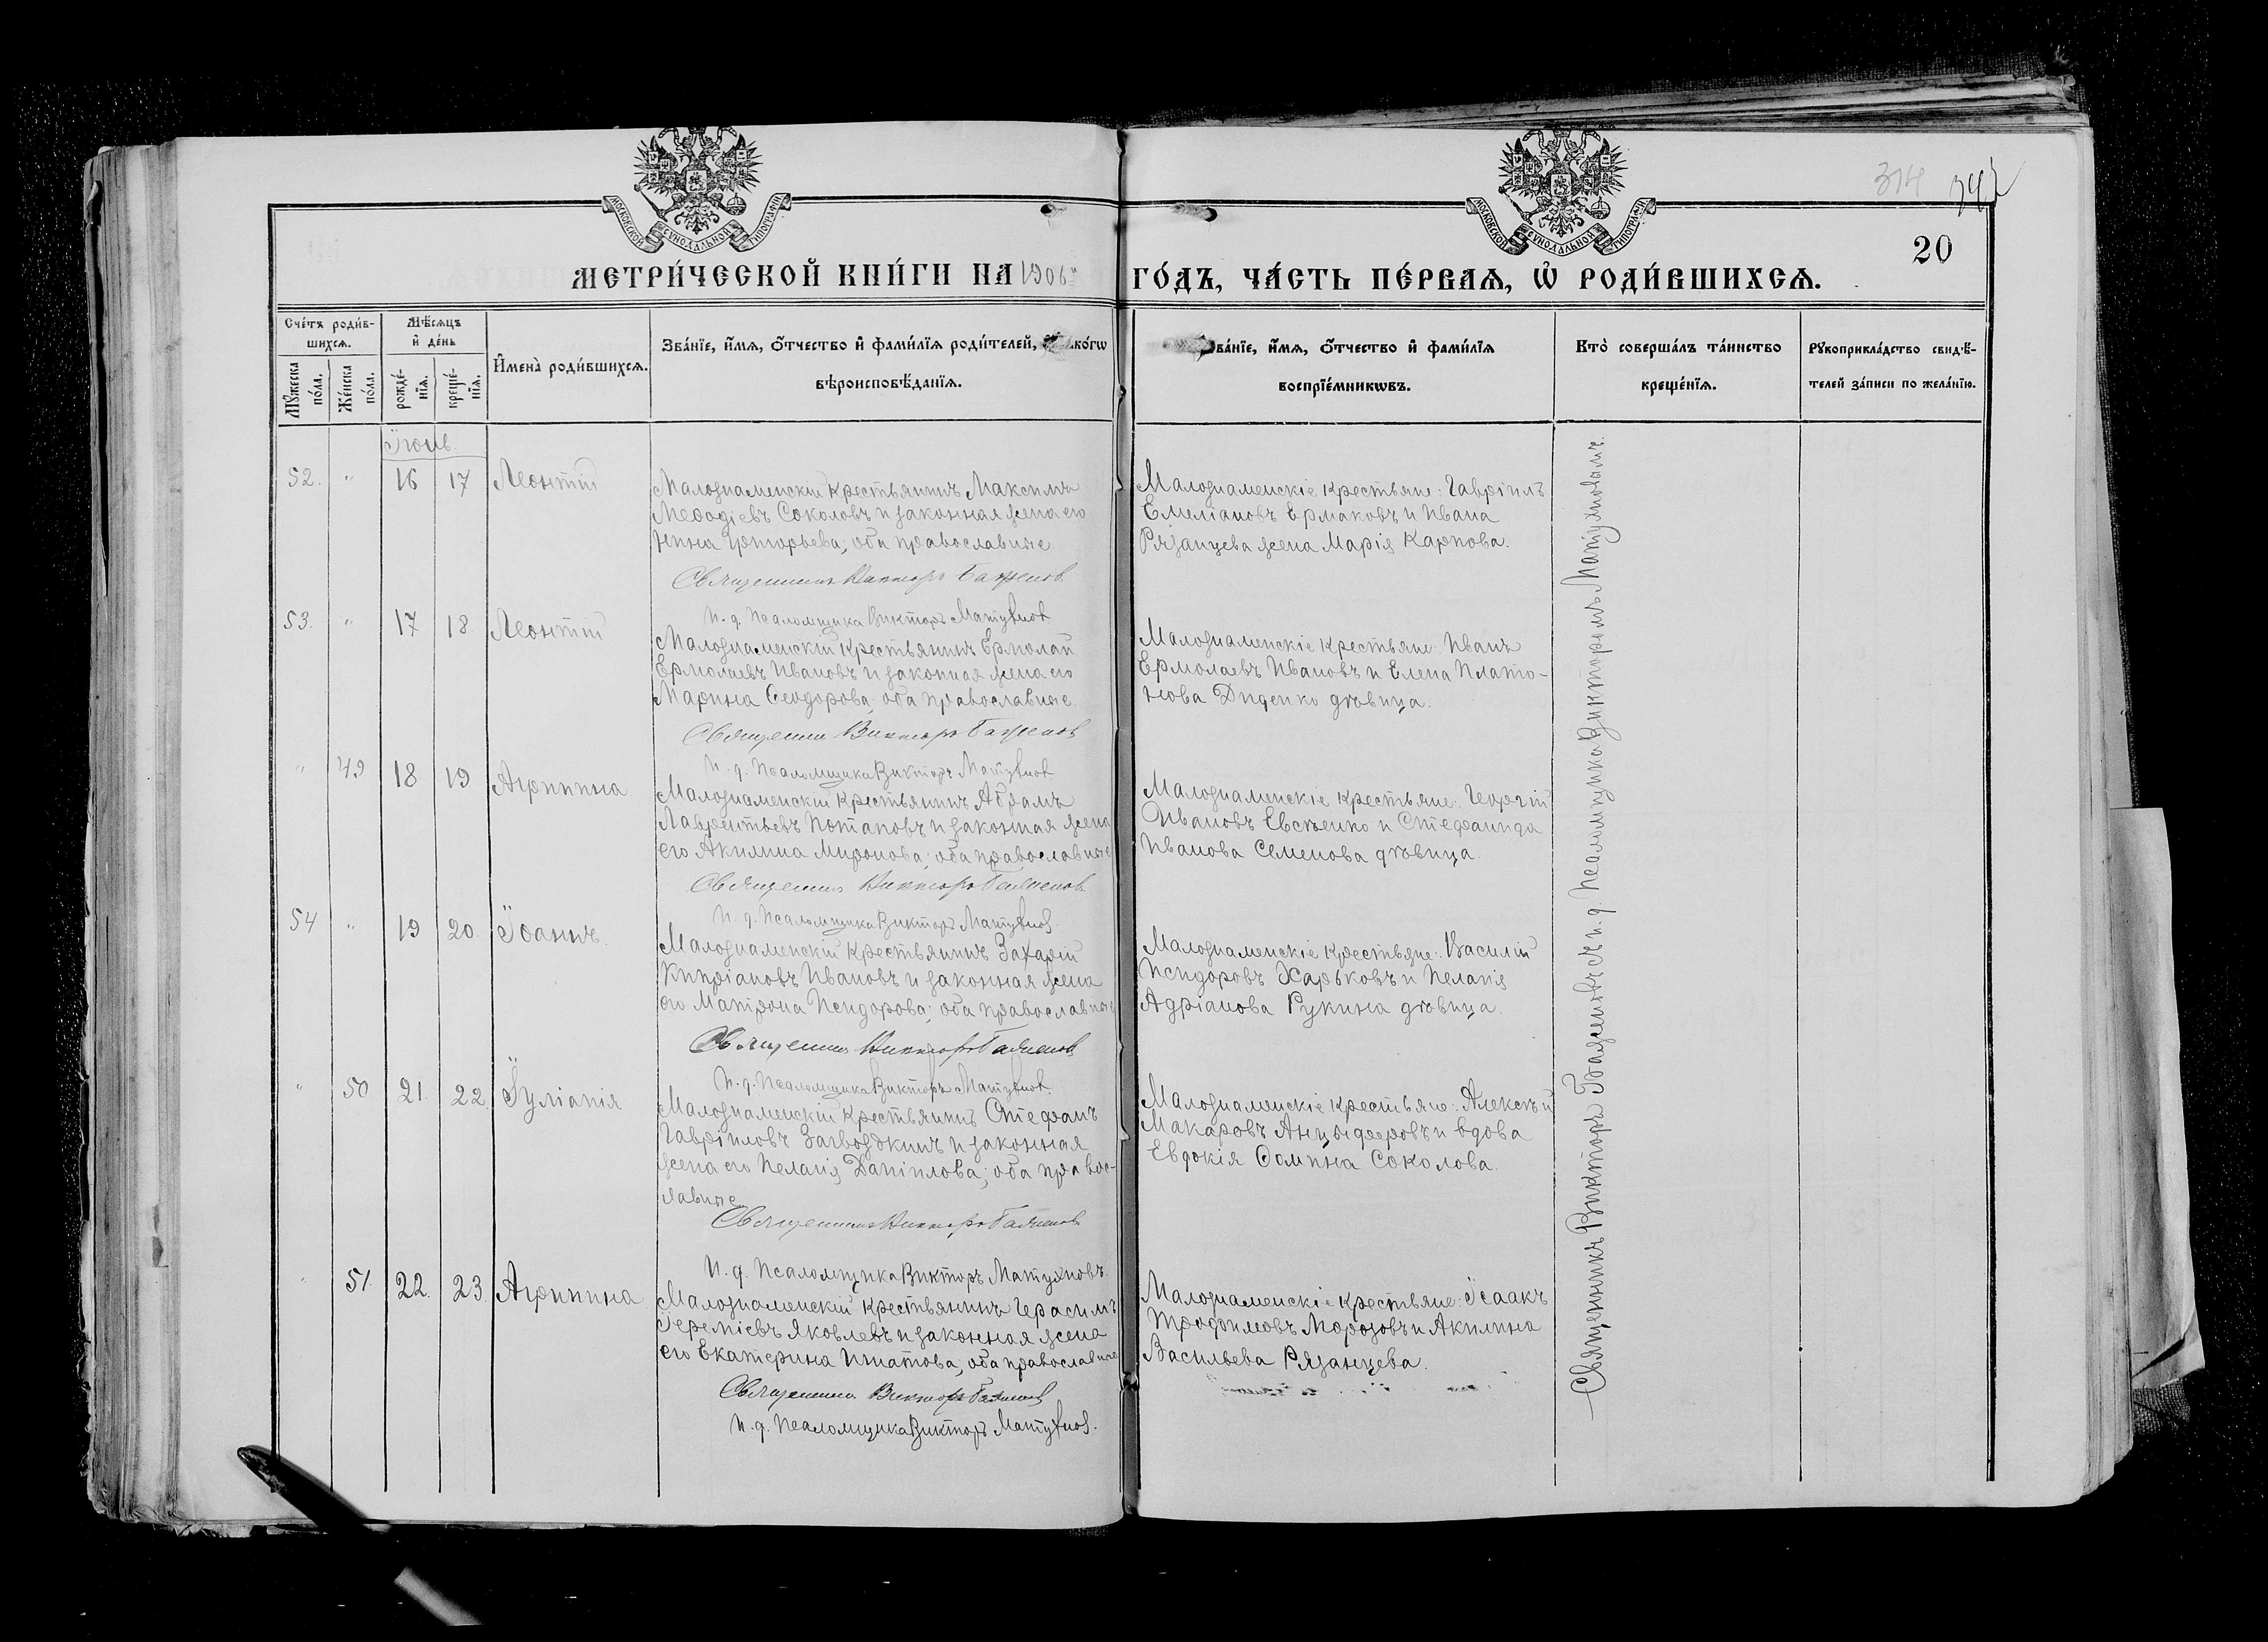 МОСКОВСКОЙ СѴНОДАЛЬНОЙ ТИПОГРАФІИ
МОСКОВСКОЙ СѴНОДАЛЬНОЙ ТИПОГРАФІИ
314
20
МЕТРИ́ЧЕСКОЙ КНИ́ГИ НА 1906 ГО́ДЪ, ЧА́СТЬ ПЕ́РВАѦ, Ѿ РОДИ́ВШИХСѦ.
Сче́тъ роди́в-
шихсѧ.
Мꙋ́жеска по́ла.
Же́нска по́ла.
Мѣ́сѧцъ
и҆ де́нь
рожде́-
нїѧ.
креще́-
нїѧ.
И҆мена̀ роди́вшихсѧ.
Зва́нїе, и҆́мѧ, ѻ҆́тчество и҆ фами́лїѧ роди́телей, и҆ како́гѡ
вѣроисповѣ́данїѧ.
Зва́нїе, и҆́мѧ, ѻ҆́тчество и҆ фами́лїѧ
воспрїе́мникѡвъ.
Кто̀ соверша́лъ та́инство
креще́нїѧ.
Рꙋкоприкла́дство свидѣ́-
телей за́писи по жела́нїю.
Іюнь
52. " 16 17 Леонтій
Малознаменскій крестьянинъ Максимъ
Меѳодіевъ Соколовъ и законная жена его
Нина Григорьева; оба православные.
Священникъ Викторъ Баженов
И. д. Псаломщика Викторъ Матухнов
Малознаменскіе крестьяне: Гавріилъ
Емеліановъ Ермаковъ и Ивана
Рязанцева жена Марія Карпова.
53. " 17 18 Леонтій
Малознаменскій крестьянинъ Ермолай
Ермолаевъ Ивановъ и законная жена его
Марина Ѳеодорова; оба православные.
Священник Викторъ Баженов
И. д. Псаломщика Викторъ Матухнов
Малознаменскіе крестьяне: Иванъ
Ермолаевъ Ивановъ и Елена Плато-
нова Диденко дѣвица.
" 49 18 19 Агриппина
Малознаменскій крестьянинъ Абрамъ
Лаврентьевъ Потаповъ и законная жена
его Акилина Миронова; оба православные
Священникъ Викторъ Баженов
И. д. Псаломщика Викторъ Матухнов.
Малознаменскіе крестьяне: Георгій
Ивановъ Евсѣенко и Стефанида
Иванова Семенова дѣвица.
54 " 19 20. Іоаннъ.
Малознаменскій крестьянинъ Захарій
Кипріановъ Ивановъ и законная жена
его Матрона Исидорова; оба православные
Священникъ Викторъ Баженов
И. д. Псаломщика Викторъ Матухнов.
Малознаменскіе крестьяне: Василій
Исидоровъ Харьковъ и Пелагія
Адріанова Рукина дѣвица.
" 50 21. 22. Іуліанія
Малознаменскій крестьянинъ Стефанъ
Гавріиловъ Загвоздкинъ и законная
жена его Пелагія Даніилова; оба правос-
лавные.
Священникъ Викторъ Баженов
И. д. Псаломщика Викторъ Матухновъ.
Малознаменскіе крестьяне: Алексѣй
Макаровъ Анцыферовъ и вдова
Евдокія Ѳомина Соколова.
" 51. 22. 23. Агриппина
Малознаменскій крестьянинъ Герасимъ
Іереміевъ Яковлевъ и законная жена
его Екатерина Игнатова; оба православные
Священник Викторъ Баженов
И. д. Псаломщика Викторъ Матухнов.
Малознаменскіе крестьяне: Ісаакъ
Трофимовъ Морозовъ и Акилина
Васильева Рязанцева.
Священникъ Викторъ Баженовъ съ и. д. Псаломщика Викторомъ Матухновымъ.